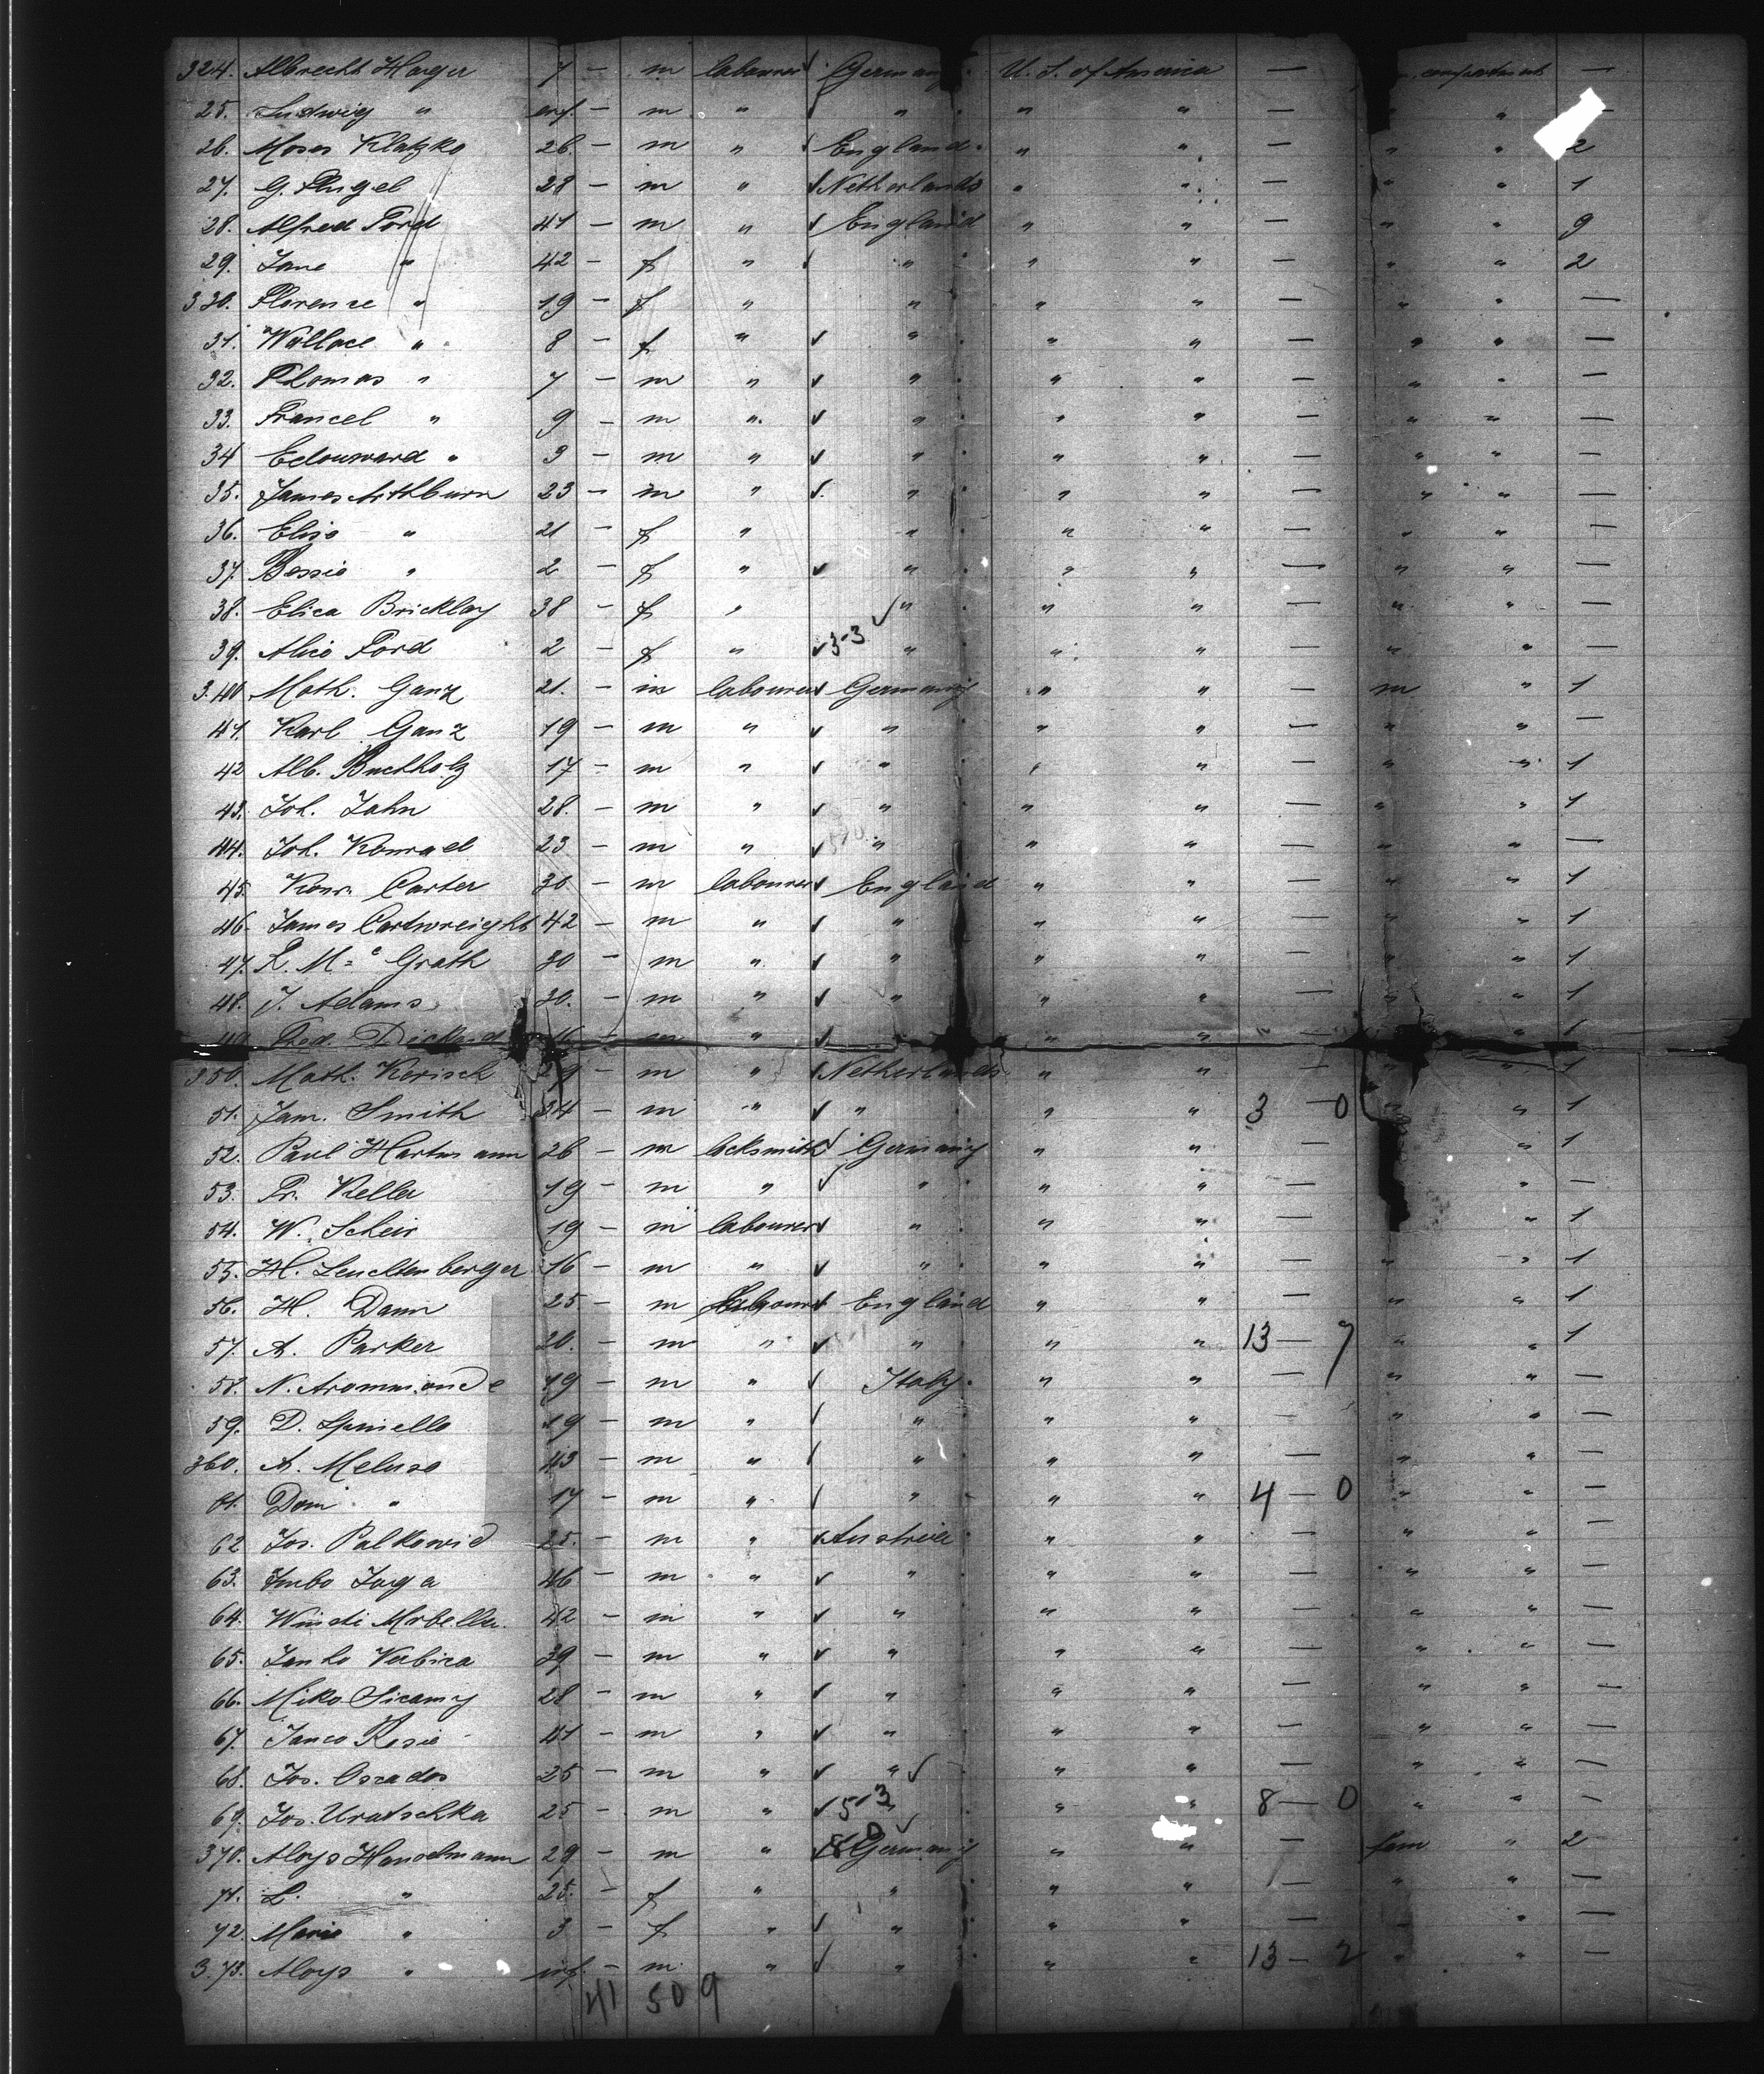 324. Albrecht Hager 7 – m labourer ✓ Germany. U. S. of America — compartment —
25. Ludwig " inf. – m " " " " — " —
26. Moses Klatzko 26 – m " England. " " — " " 2
27. G. Flügel 28 – m " ✓ Netherlands " " — " " 1
28. Alfred Ford 41 – m " ✓ England " " — " " 9
29. Jane " 42 – f " " " " — " " 2
330. Florence " 19 – f " " " " — " " —
31. Wallace " 8 – f " ✓ " " " — " " —
32. Thomas " 7 – m " ✓ " " " — " " —
33. Francel " 9 – m " ✓ " " " — " " —
34 Edouward " 3 – m " ✓ " " " — " " —
35. James 23 – m " ✓ " " " — " " —
36. Elise " 21 – f " " " " — " " —
37. Bessie " 2 – f " ✓ " " " — " " —
38. Elica Bricklay 38 – f " ✓ " " " — " " —
39. Alice Ford 2 – f " ✓ 3-3 " " " — " " —
340 Math. Ganz 21. – m labourer ✓ Germany " " — m " 1
41. Karl Ganz 19 – m " ✓ " " " — " " —
42 Alb. Buchholz 17 – m " ✓ " " " — " " 1
43. Joh. Jahn 28. – m " ✓ " " " — " " 1
44. Joh. Konrad 23 – m " ✓ " " " — " " —
45. Carter 30 – m labourer ✓ England " " — " " 1
46. James Cartwreight 42 – m " ✓ " " " — " " 1
47. R. Mc Grath 30 – m " ✓ " " " — " " 1
48. J. Adams 30. – m " ✓ " " " — " " 1
49. 16 – m " ✓ " " " — " 1
350. Math. Kerisch 29 – m " ✓ Netherlands " " — " " 1
51. Jam. Smith 34 – m " ✓ " " " 3 – 0 " " 1
52. Paul Hartmann 26 – m locksmith ✓ Germany " " — " 1
53. Fr. Keller 19 – m " ✓ " " " — " —
54. W. Scheir 19 – m labourer ✓ " " " — " 1
55. H. Leuchtenberger 16 – m " ✓ " " " — " " 1
56. H. Dann 25 – m labourer ✓ England " " — " " 1
57. A. Parker 20. – m " ✓ " " " 13 — 7 " " 1
58. N. Arammonde 19 – m " ✓ Italy. " " — " " —
59. D. Spinello 19 – m " ✓ " " " — " " —
360. A. Meluso 43 – m " " " " — " " —
61. Dom " 17 – m " " " " 4 — 0 " " —
62 Jos. Palkowid 25. – m " ✓ Austria " " — " " —
63. Jaga 46 – m " ✓ " " " — " " —
64. 42 – m " ✓ " " " — " " —
65. Janko Verbica 39 – m " ✓ " " " — " " —
66. Miko Sicamy 28 – m " ✓ " " " — " " —
67. Janco Resie 41 – m " ✓ " " " — " " —
68. Jos. Oscados 25 – m " ✓ " ✓ " " — " " —
69. Jos. Uratschka 25 – m " ✓ 5-3 " " 8 — 0 " " —
370. Aloys Hanselmann 29 – m " ✓ Germany " " — fam " 2
71. L. " 25. – f " " " " — " " —
72. Marie " 3 – f " ✓ " " " — " —
373. Aloys " inf. – m. " ✓ " " " 13 — 2 " " —
41 50 9